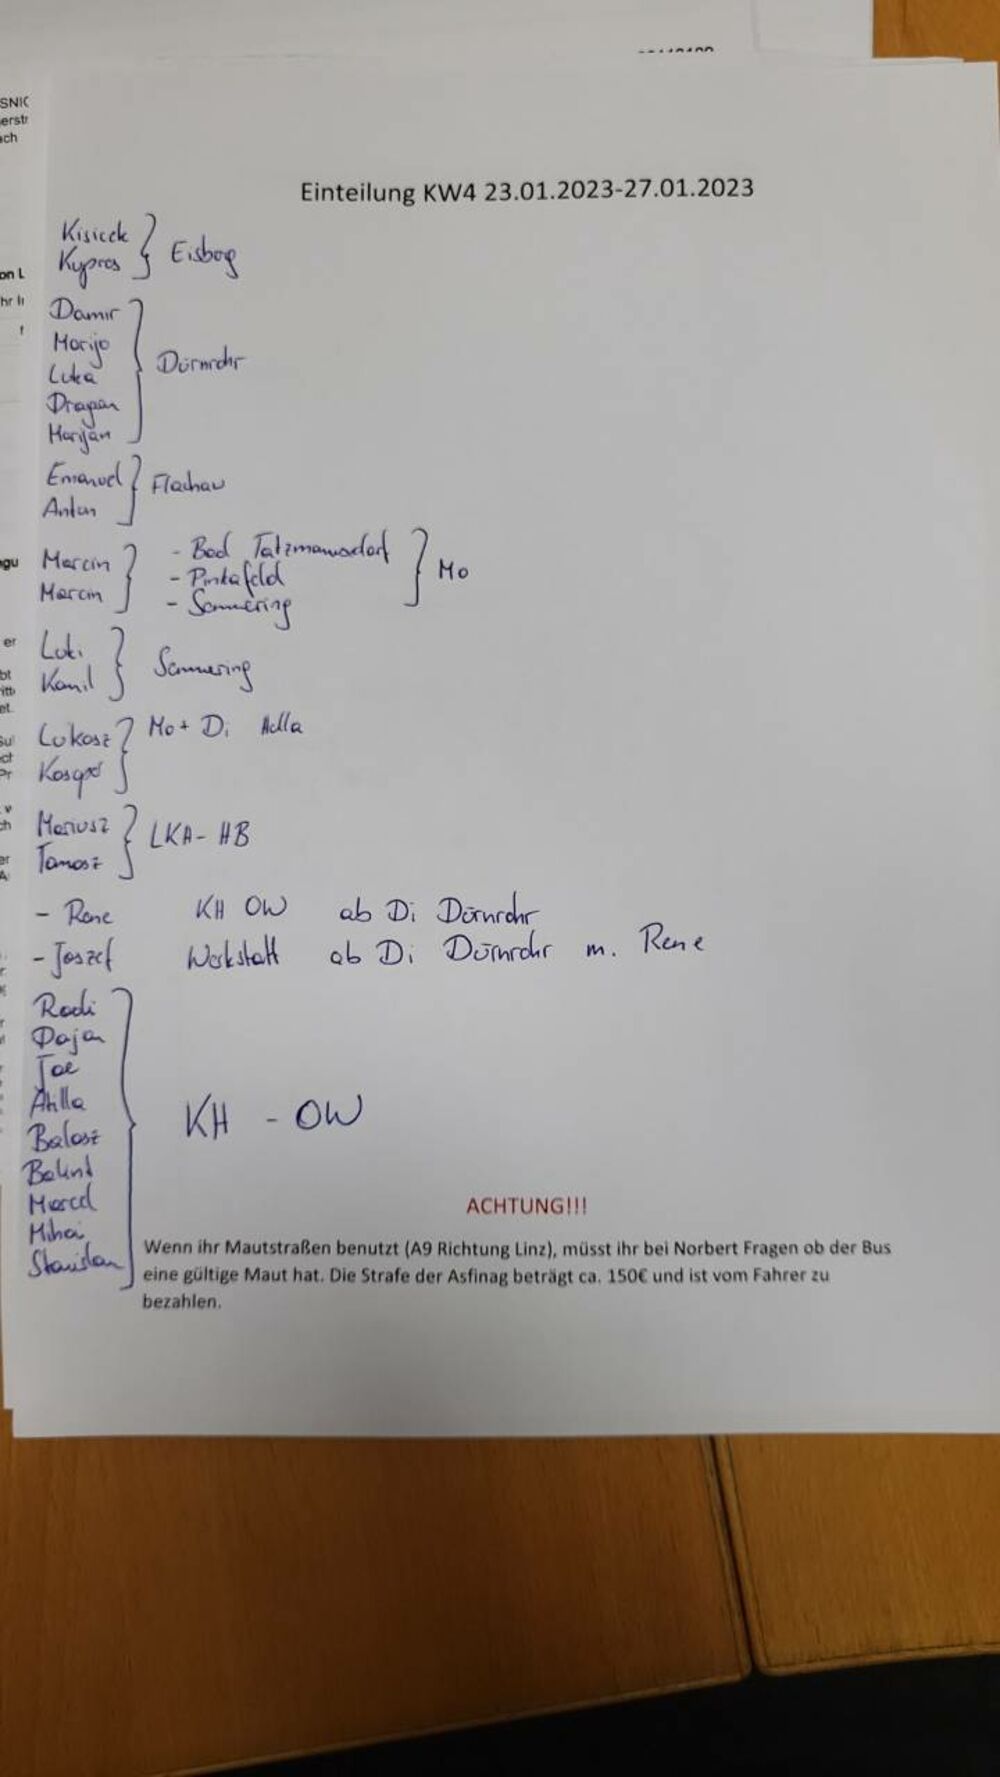 SNIC
erstr
ach
Einteilung KW4 23.01.2023-27.01.2023
Kisicek
Kypros
Eisbog
Damir
Marijo
Luka
Dragan
Marijan
Dürnrohr
Emanuel
Anton
Flachau
Marcin
Marcin
- Bad Tatzmannsdorf
- Pinkafeld
- Sömmering
Mo
Luki
Kamil
Sömmering
Lukasz
Mo + Di Adla
Mariusz
Tomasz
LKA - HB
- Rene KH OW ab Di Dürnrohr
- Joszef Werkstatt ab Di Dürnrohr m. Rene
Radi
Dajan
Joe
Atilla
Balasz
Balint
Marcel
Mihai
Stanislav
KH - OW
ACHTUNG!!!
Wenn ihr Mautstraßen benutzt (A9 Richtung Linz), müsst ihr bei Norbert Fragen ob der Bus
eine gültige Maut hat. Die Strafe der Asfinag beträgt ca. 150€ und ist vom Fahrer zu
bezahlen.